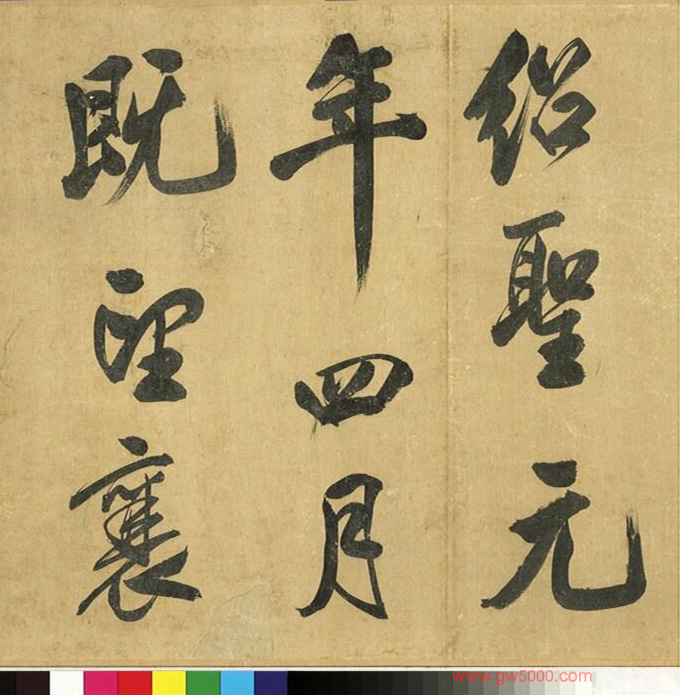 绍聖元
年四月
既望襄
www.gw5000.com